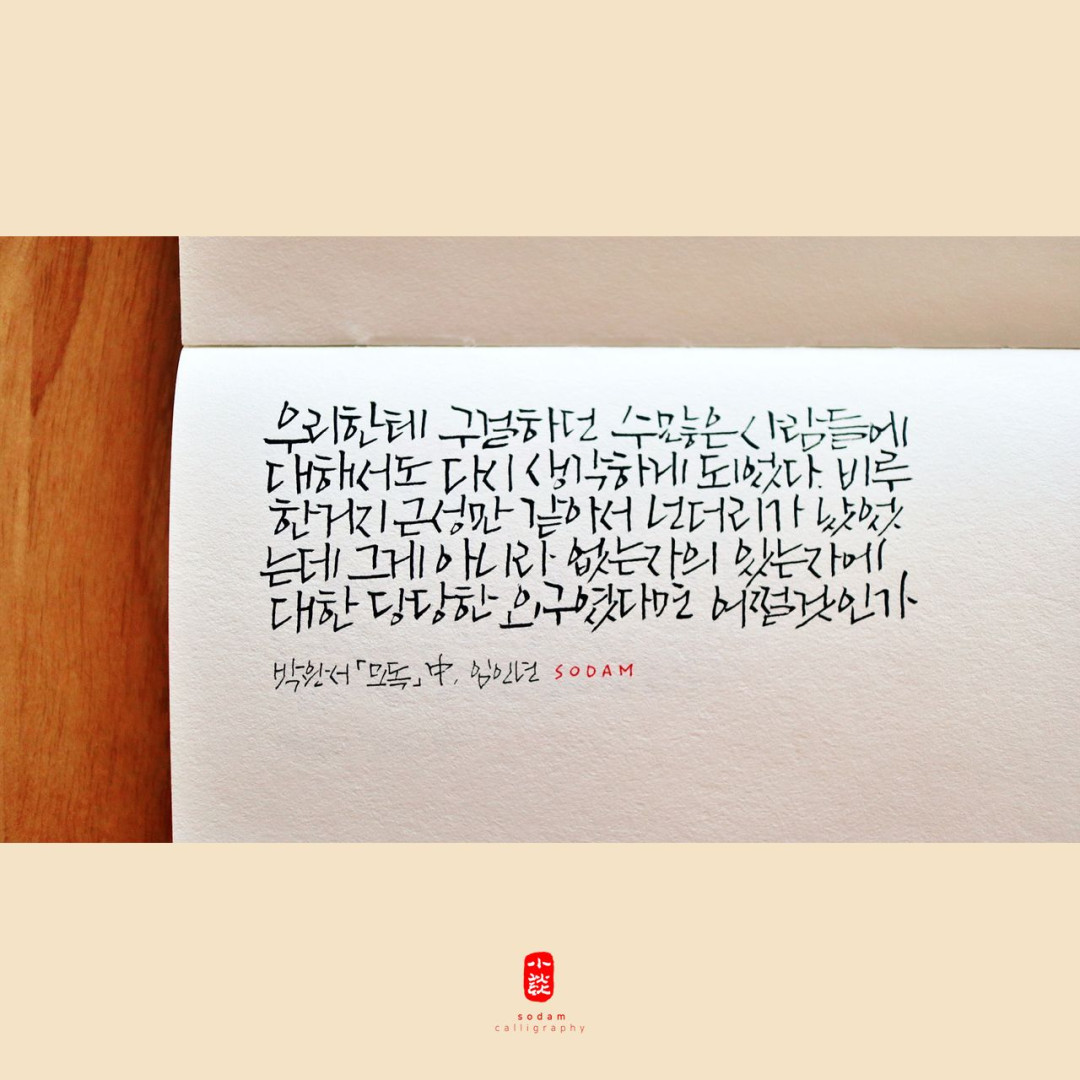 우리한테 구걸하던 수많은 사람들에
대해서도 다시 생각하게 되었다. 비루
한 거지 근성만 같아서 넌더리가 났었
는데 그게 아니라 없는 자의 있는 자에
대한 당당한 요구였다면 어쩔 것인가
박완서 「모독」 中, 임인년 SODAM
小談
sodam
calligraphy